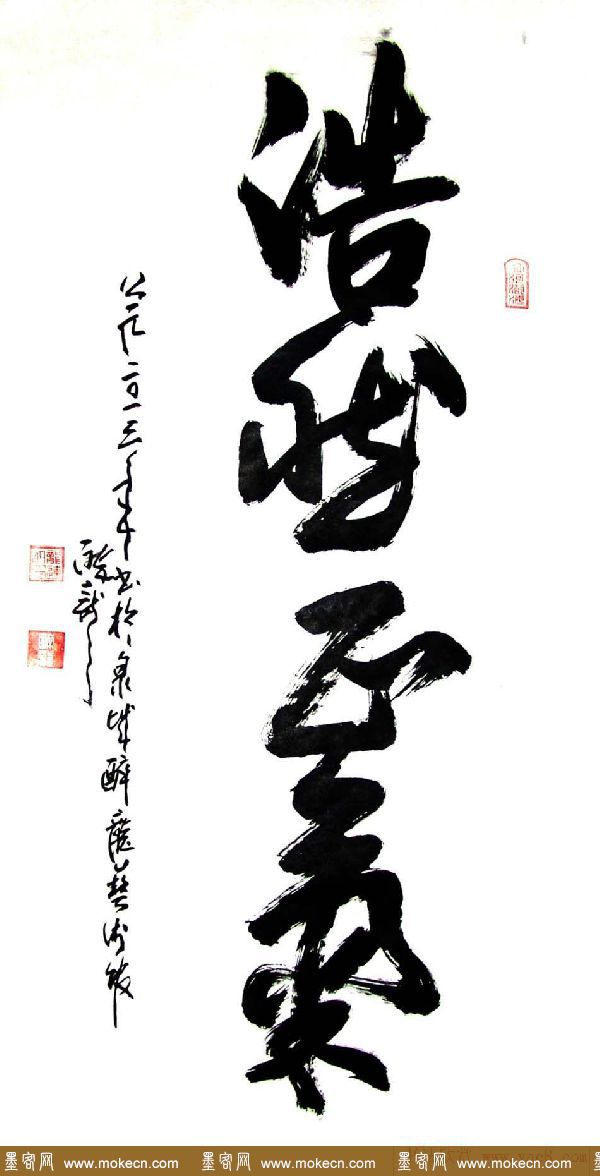 浩然正氣
公元二〇一三年
書於泉城醉龍藝術館
墨客网 www.mokecn.com 墨客网 www.mokecn.com 墨客网 www.mokecn.com